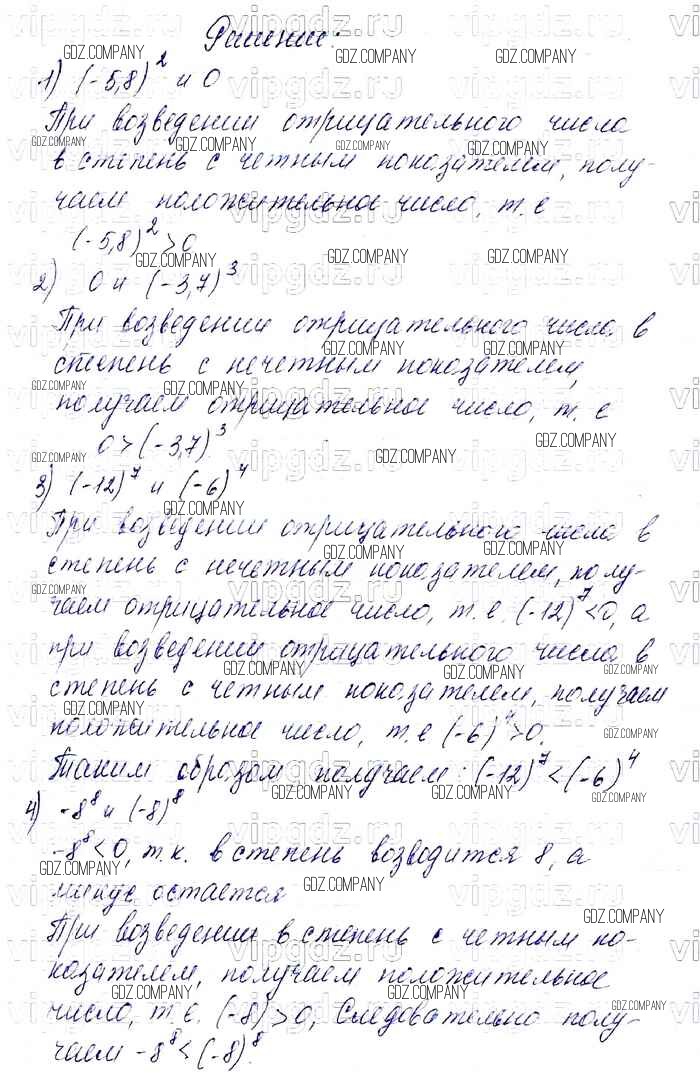 Решение:
1) (-5,8)² и 0
При возведении отрицательного числа
в степень с четным показателем, полу-
чаем положительное число, т. е
(-5,8)² > 0
2) 0 и (-3,7)³
При возведении отрицательного числа в
степень с нечетным показателем,
получаем отрицательное число, т. е
0 > (-3,7)³
3) (-12)⁷ и (-6)⁴
При возведении отрицательного числа в
степень с нечетным показателем, полу-
чаем отрицательное число, т. е. (-12)⁷ < 0, а
при возведении отрицательного числа в
степень с четным показателем, получаем
положительное число, т. е (-6)⁴ > 0.
Таким образом получаем: (-12)⁷ < (-6)⁴
4) -8⁸ и (-8)⁸
-8⁸ < 0, т. к. в степень возводится 8, а
минус остается
При возведении в степень с четным по-
казателем, получаем положительное
число, т. е. (-8) > 0, Следовательно полу-
чаем -8⁸ < (-8)⁸.
vipgdz.ru
GDZ.COMPANY